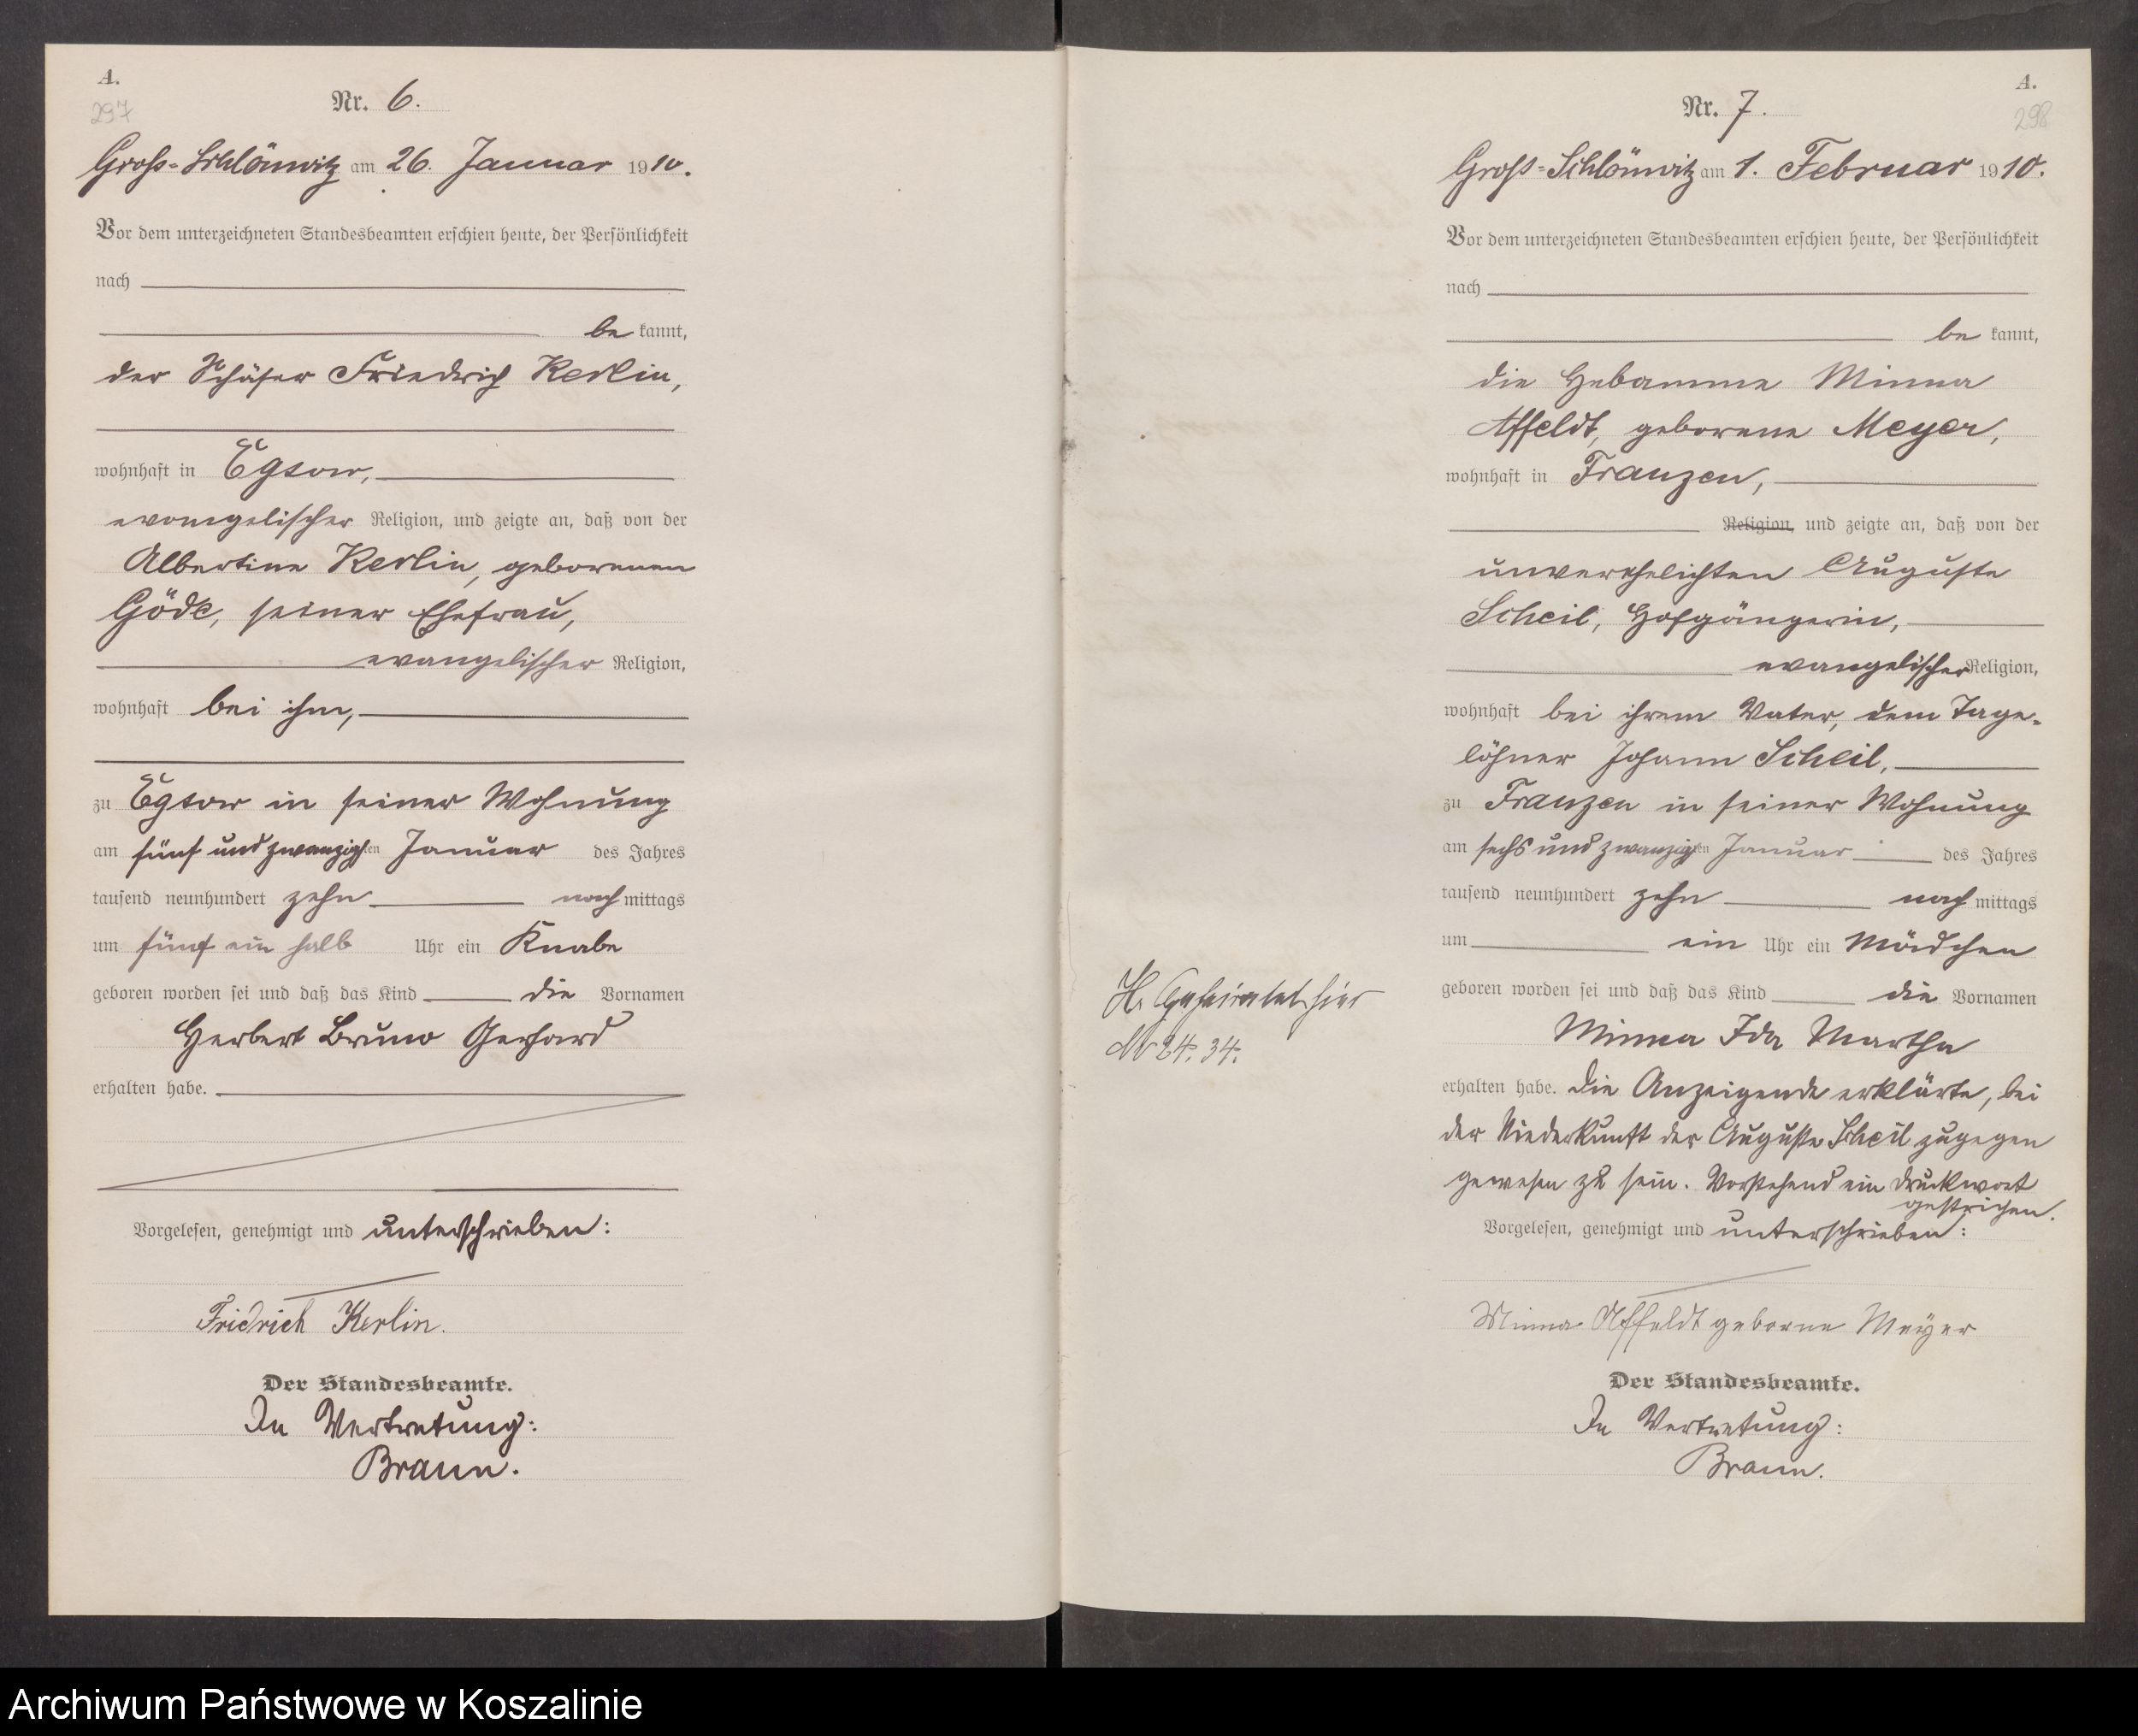 A.
297
Nr. 6.
Groß-Schlönwitz am 26. Januar 1910.
Vor dem unterzeichneten Standesbeamten erschien heute, der Persönlichkeit
nach
be kannt,
der Schäfer Friedrich Kerlin,
wohnhaft in Egsow,
evangelischer Religion, und zeigte an, daß von der
Albertine Kerlin, geborenen
Gödk, seiner Ehefrau,
evangelischer Religion,
wohnhaft bei ihm,
zu Egsow in seiner Wohnung
am fünf und zwanzigsten Januar des Jahres
tausend neunhundert zehn nach mittags
um fünf ein halb Uhr ein Knabe
geboren worden sei und daß das Kind die Vornamen
Herbert Bruno Gerhard
erhalten habe.
Vorgelesen, genehmigt und unterschrieben:
Fridrich Kerlin.
Der Standesbeamte.
In Vertretung:
Braun.
A.
298
Nr. 7.
Groß-Schlönwitz am 1. Februar 1910.
Vor dem unterzeichneten Standesbeamten erschien heute, der Persönlichkeit
nach
be kannt,
die Hebamme Minna
Affeldt, geborene Meyer,
wohnhaft in Franzen,
Religion, und zeigte an, daß von der
unverehelichten Auguste
Scheil, Hofgängerin,
evangelischer Religion,
wohnhaft bei ihrem Vater, dem Tage-
löhner Johann Scheil,
zu Franzen in seiner Wohnung
am sechs und zwanzigsten Januar des Jahres
tausend neunhundert zehn nach mittags
um ein Uhr ein Mädchen
geboren worden sei und daß das Kind die Vornamen
Minna Ida Martha
erhalten habe. Die Anzeigende erklärte, bei
der Niederkunft der Auguste Scheil zugegen
gewesen zu sein. Vorstehend ein Druckwort
gestrichen.
Vorgelesen, genehmigt und unterschrieben:
Minna Affeldt geborne Meyer
Der Standesbeamte.
In Vertretung:
Braun.
H. Geheiratet hier
Nr 24. 34.
Archiwum Państwowe w Koszalinie